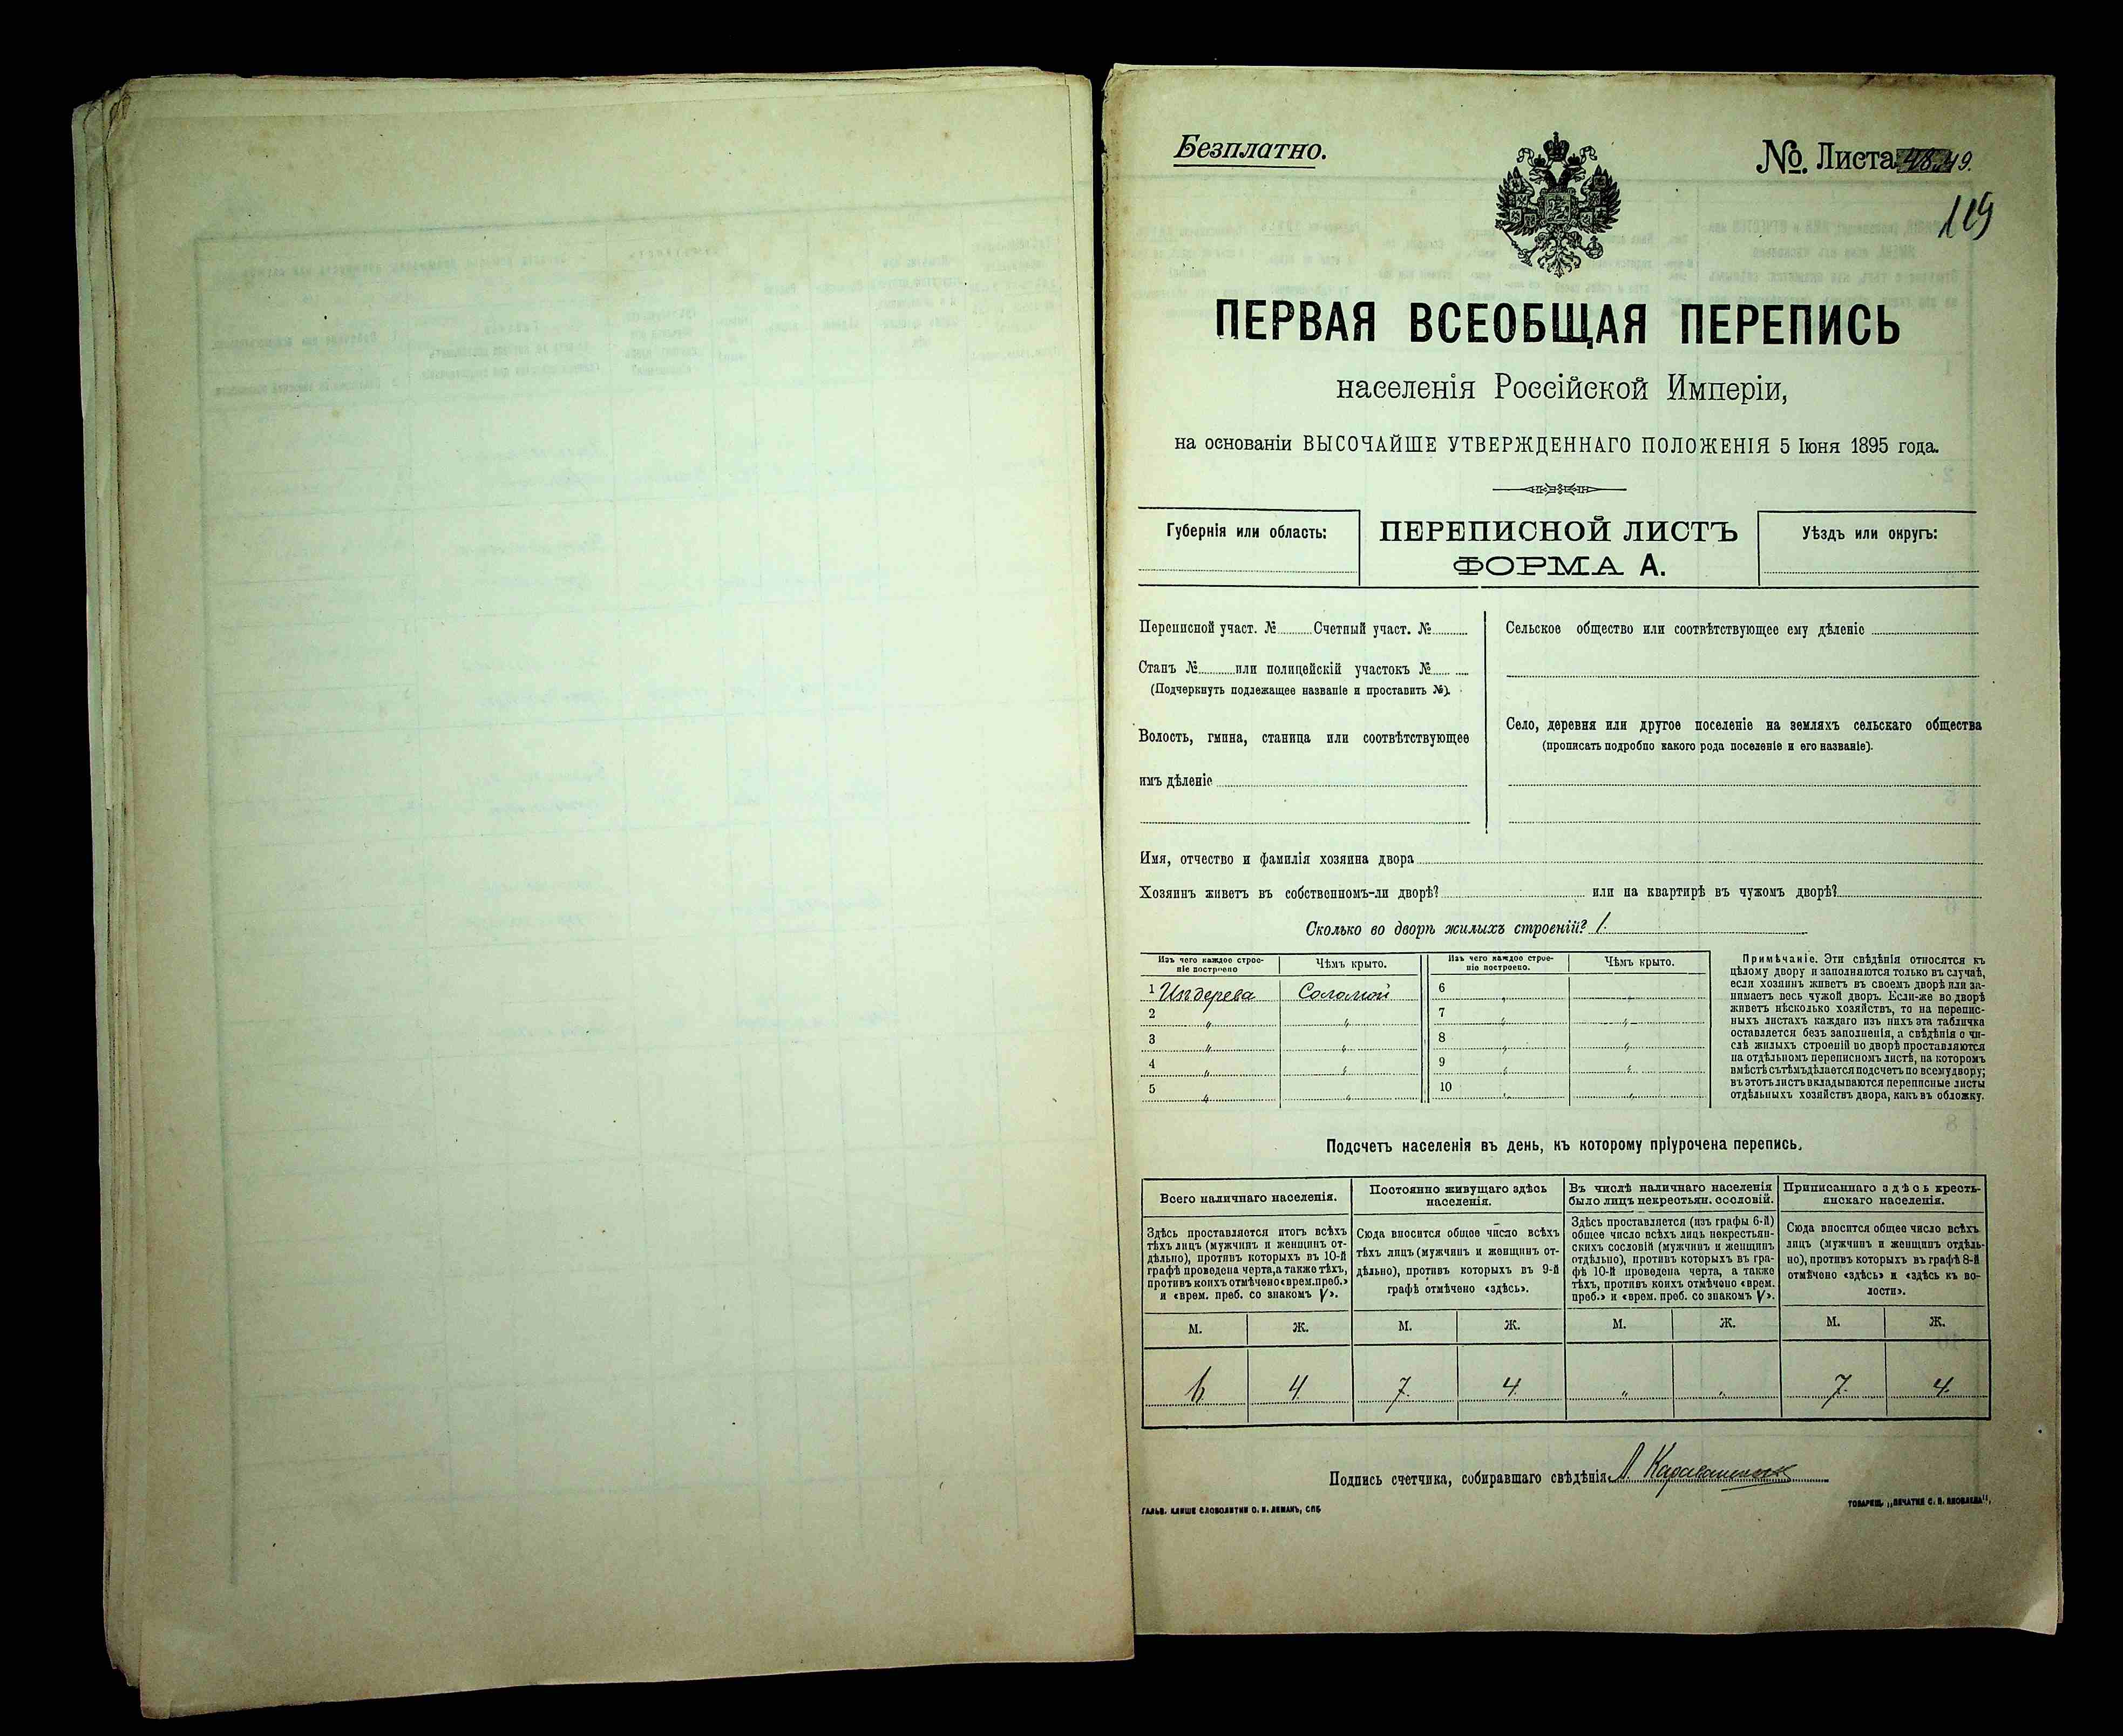 Безплатно.
№. Листа 49.
119
ПЕРВАЯ ВСЕОБЩАЯ ПЕРЕПИСЬ
населенія Россійской Имперіи,
на основаніи ВЫСОЧАЙШЕ УТВЕРЖДЕННАГО ПОЛОЖЕНІЯ 5 Іюня 1895 года.
Губернія или область:
ПЕРЕПИСНОЙ ЛИСТЪ
ФОРМА А.
Уѣздъ или округъ:
Переписной участ. № Счетный участ. №
Станъ № или полицейскій участокъ №
(Подчеркнуть подлежащее названіе и проставить №).
Волость, гмина, станица или соотвѣтствующее
имъ дѣленіе
Сельское общество или соотвѣтствующее ему дѣленіе
Село, деревня или другое поселеніе на земляхъ сельскаго общества
(прописать подробно какого рода поселеніе и его названіе).
Имя, отчество и фамилія хозяина двора
Хозяинъ живетъ въ собственномъ-ли дворѣ? или на квартирѣ въ чужомъ дворѣ?
Сколько во дворѣ жилыхъ строеній? 1.
Изъ чего каждое строе-
ніе построено
Чѣмъ крыто.
Изъ чего каждое строе-
ніе построено.
Чѣмъ крыто.
1 Изъ дерева Соломой 6 " "
2 " " 7 " "
3 " " 8 " "
4 " " 9 " "
5 " " 10 " "
Примѣчаніе. Эти свѣдѣнія относятся къ
цѣлому двору и заполняются только въ случаѣ,
если хозяинъ живетъ въ своемъ дворѣ или за-
нимаетъ весь чужой дворъ. Если-же во дворѣ
живетъ нѣсколько хозяйствъ, то на перепис-
ныхъ листахъ каждаго изъ нихъ эта табличка
оставляется безъ заполненія, а свѣдѣнія о чи-
слѣ жилыхъ строеній во дворѣ проставляются
на отдѣльномъ переписномъ листѣ, на которомъ
вмѣстѣ съ тѣмъ дѣлается подсчетъ по всему двору;
въ этотъ листъ вкладываются переписные листы
отдѣльныхъ хозяйствъ двора, какъ въ обложку.
Подсчетъ населенія въ день, къ которому пріурочена перепись.
Всего наличнаго населенія.
Здѣсь проставляется итогъ всѣхъ
тѣхъ лицъ (мужчинъ и женщинъ от-
дѣльно), противъ которыхъ въ 10-й
графѣ проведена черта, а также тѣхъ,
противъ коихъ отмѣчено «врем. преб.»
и «врем. преб. со знакомъ V».
Постоянно живущаго здѣсь
населенія.
Сюда вносится общее число всѣхъ
тѣхъ лицъ (мужчинъ и женщинъ от-
дѣльно), противъ которыхъ въ 9-й
графѣ отмѣчено «здѣсь».
Въ числѣ наличнаго населенія
было лицъ некрестьян. сословій.
Здѣсь проставляется (изъ графы 6-й)
общее число всѣхъ лицъ некрестьян-
скихъ сословій (мужчинъ и женщинъ
отдѣльно), противъ которыхъ въ гра-
фѣ 10-й проведена черта, а также
тѣхъ, противъ коихъ отмѣчено «врем.
преб.» и «врем. преб. со знакомъ V».
Приписаннаго здѣсь кресть-
янскаго населенія.
Сюда вносится общее число всѣхъ
лицъ (мужчинъ и женщинъ отдѣль-
но), противъ которыхъ въ графѣ 8-й
отмѣчено «здѣсь» и «здѣсь къ во-
лости».
М. Ж. М. Ж. М. Ж. М. Ж.
6 4. 7. 4. " " 7. 4.
Подпись счетчика, собиравшаго свѣдѣнія
ГАЛЬВ. КЛИШЕ СЛОВОЛИТНИ О. И. ЛЕМАНЪ, СПБ.
ТОВАРИЩ. „ПЕЧАТНЯ С. П. ЯКОВЛЕВА",